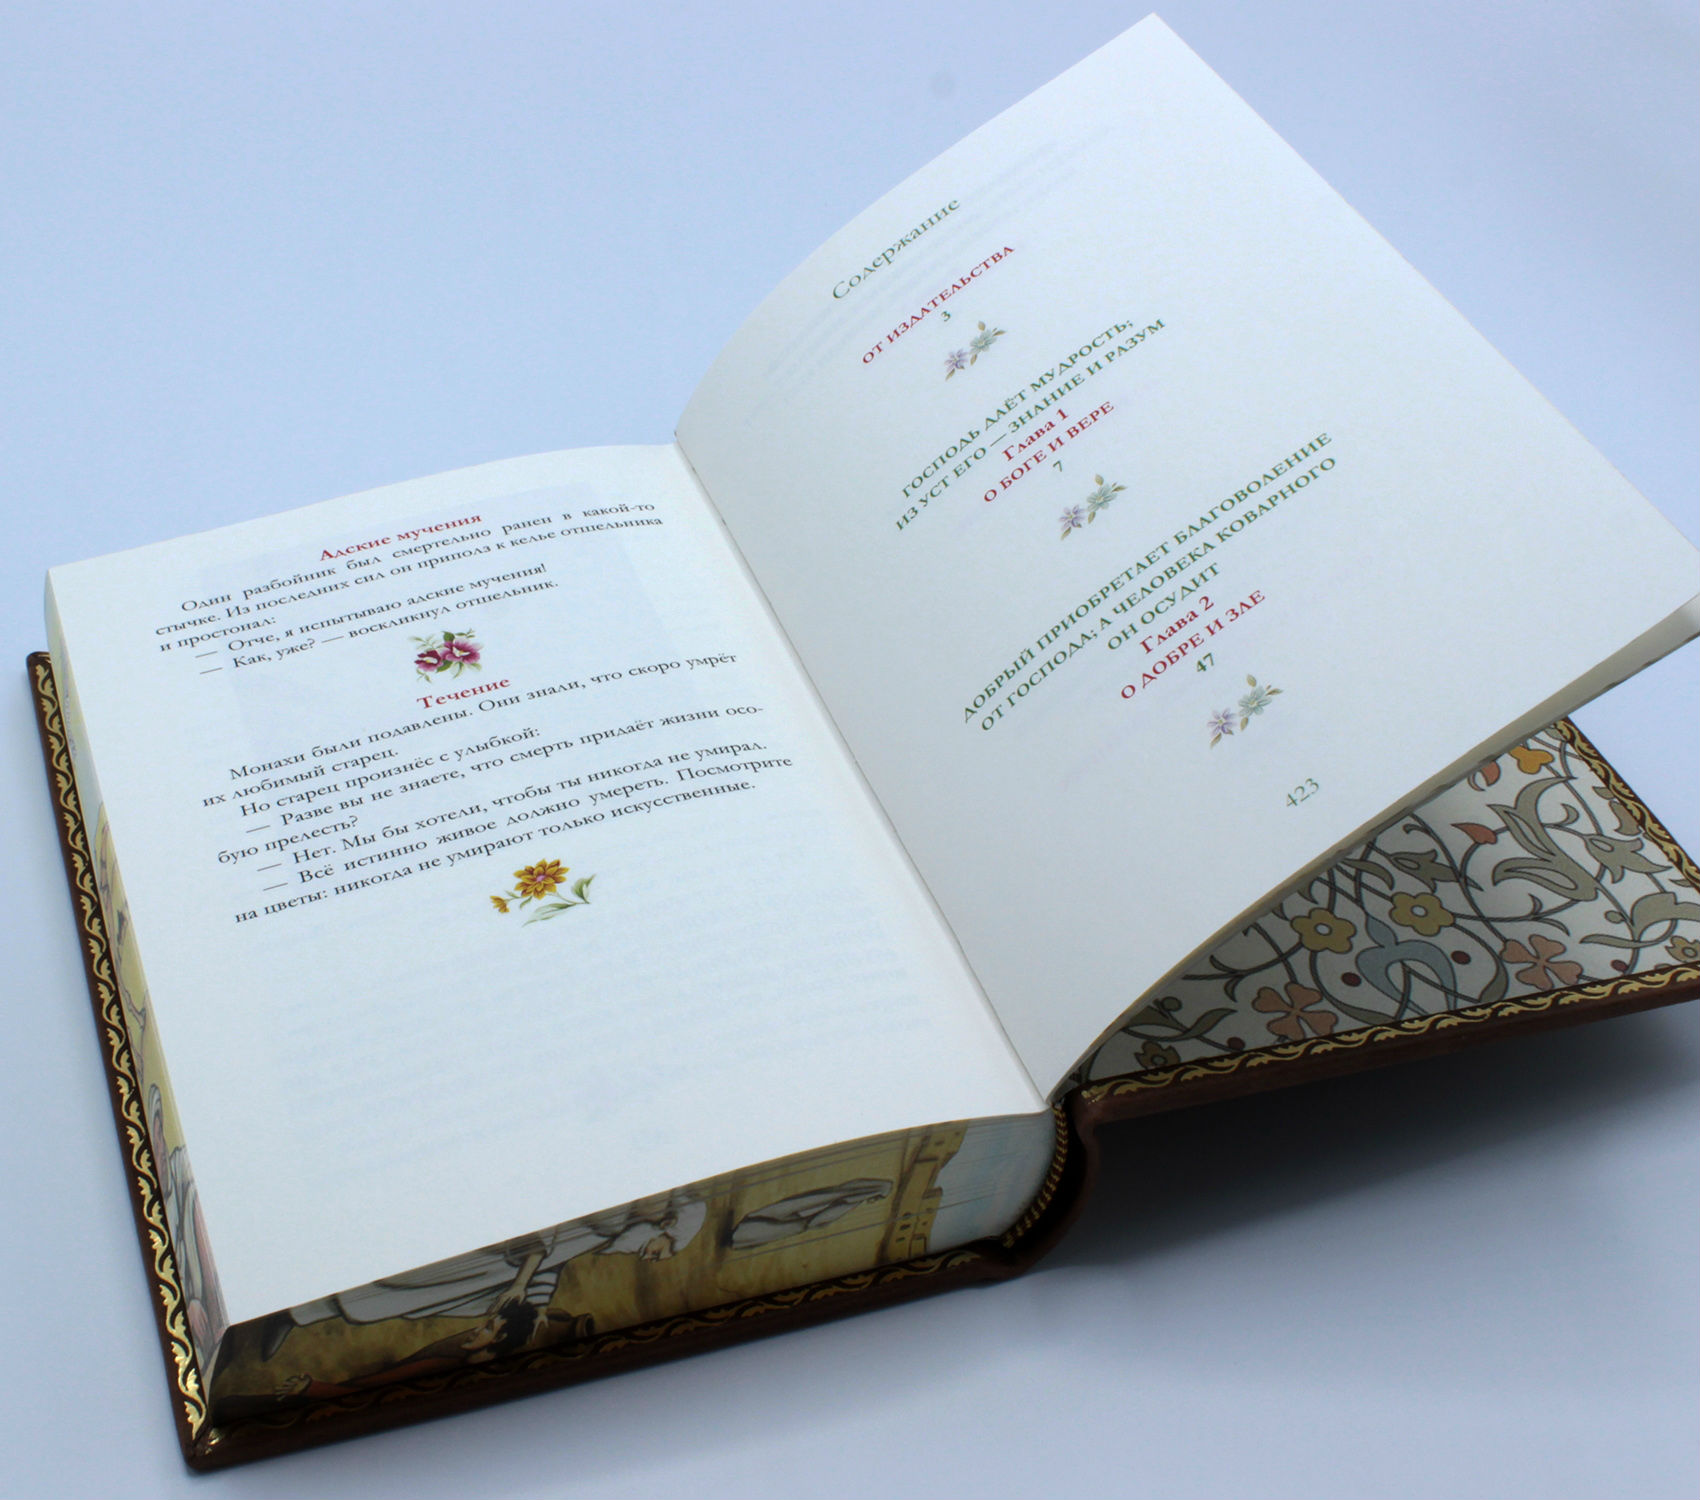 Адские мучения
Один разбойник был смертельно ранен в какой-то
стычке. Из последних сил он приполз к келье отшельника
и простонал:
— Отче, я испытываю адские мучения!
— Как, уже? — воскликнул отшельник.
Течение
Монахи были подавлены. Они знали, что скоро умрёт
их любимый старец.
Но старец произнёс с улыбкой:
— Разве вы не знаете, что смерть придаёт жизни осо-
бую прелесть?
— Нет. Мы бы хотели, чтобы ты никогда не умирал.
— Всё истинно живое должно умереть. Посмотрите
на цветы: никогда не умирают только искусственные.
Содержание
ОТ ИЗДАТЕЛЬСТВА
3
ГОСПОДЬ ДАЁТ МУДРОСТЬ;
ИЗ УСТ ЕГО — ЗНАНИЕ И РАЗУМ
Глава 1
О БОГЕ И ВЕРЕ
7
ДОБРЫЙ ПРИОБРЕТАЕТ БЛАГОВОЛЕНИЕ
ОТ ГОСПОДА; А ЧЕЛОВЕКА КОВАРНОГО
ОН ОСУДИТ
Глава 2
О ДОБРЕ И ЗЛЕ
47
423